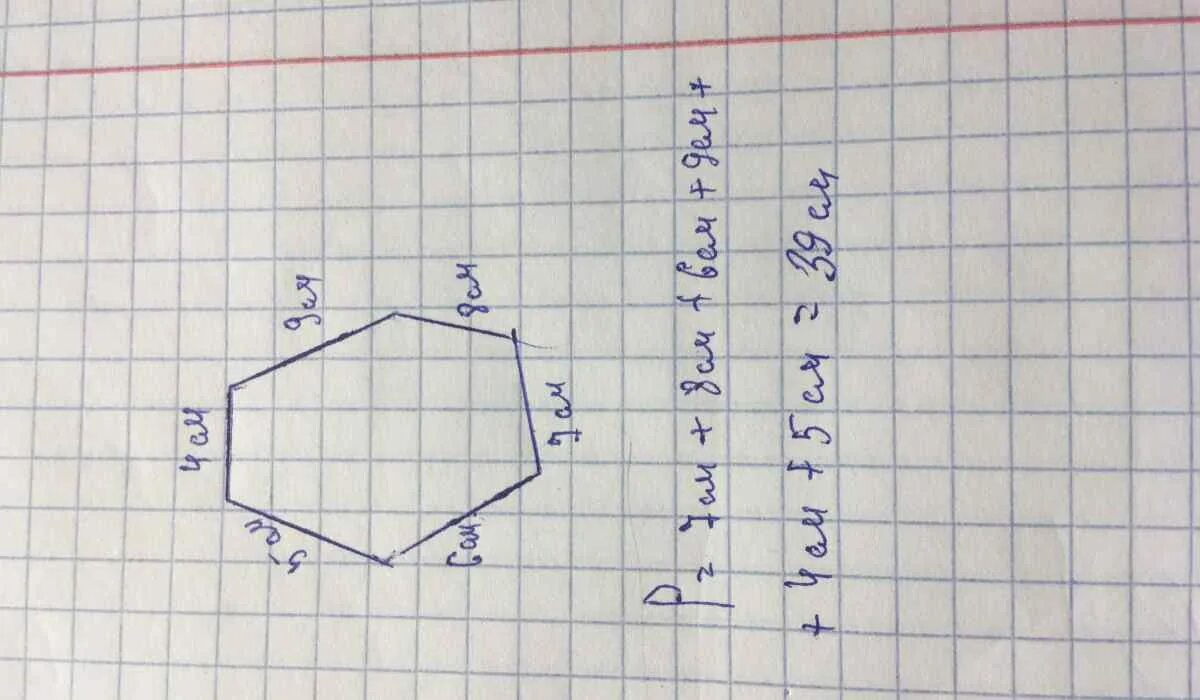 4 см
9 см
5 см
8 см
6 см
7 см
P = 7 см + 8 см + 6 см + 9 см +
+ 4 см + 5 см = 39 см